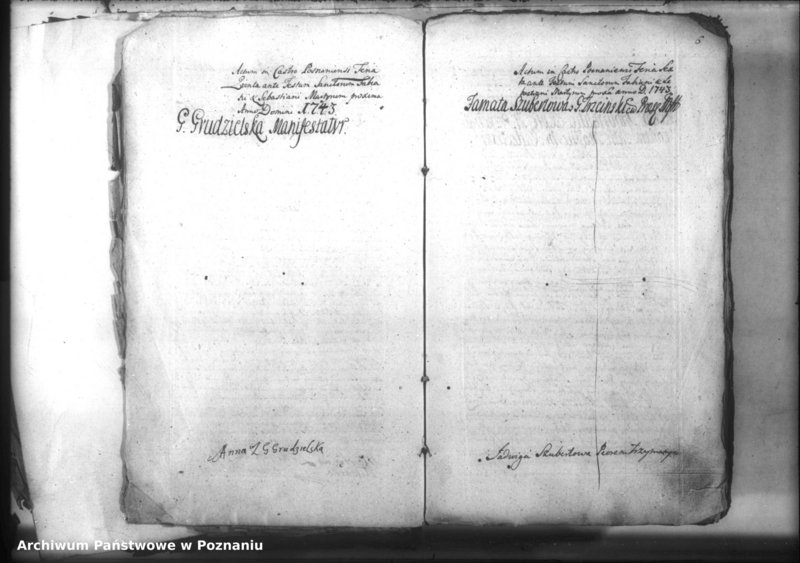 Actum in Castro Posnaniensi Feria
Quinta ante Festum Sanctorum Fabia
ni et Sebastiani Martyrum proxima
Anno Domini 1743
G. Grudzielska Manifestatur.
Anna Z G Grudzielska
6
Actum in Castro Posnaniensi Feria
ante Festum Sanctorum Fabiani et Se
bastiani Martyrum proxa anno D. 1743
Famata Szubertowa G.
Jadwiga Szubertowa
Archiwum Państwowe w Poznaniu